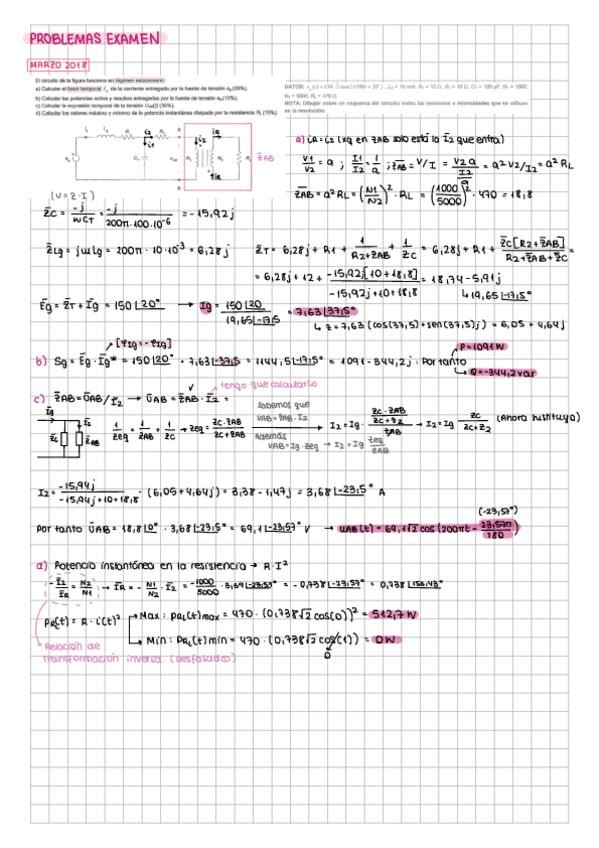 PROBLEMAS EXAMEN
MARZO 2018
El circuito de la figura funciona en régimen estacionario.
a) Calcular el fasor temporal Ig de la corriente entregada por la fuente de tensión eg (35%).
b) Calcular las potencias activa y reactiva entregadas por la fuente de tensión eg (15%).
c) Calcular la expresión temporal de la tensión uAB(t) (35%).
d) Calcular los valores máximo y mínimo de la potencia instantánea disipada por la resistencia RL (15%).
NOTA: Dibujar sobre un esquema del circuito todas las tensiones e intensidades que se utilicen
en la resolución.
a) iR=i2 (xq en ZAB solo está la I2 que entra)
V1/V2 = a ; I1/I2 = 1/a ; ZAB = V/I = V2a/(I2/a) = a² V2/I2 = a² RL
ZAB = a² RL = (N1/N2)² · RL = (1000/5000)² · 470 = 18,8
ZAB
(U=Z·I)
ZC = -j/WCT = -j/200π·100·10⁻⁶ = -15,92j
ZLg = jwLg = 200π · 10·10⁻³ = 6,28j
ZT = 6,28j + R1 + 1/(R2+ZAB) + 1/ZC = 6,28j + R1 + ZC[R2+ZAB]/(R2+ZAB+ZC) =
= 6,28j + 12 + -15,92j[10+18,8]/(-15,92j+10+18,8) = 18,74-5,91j
↳ 19,65 |-17,5°
Eg = ZT + Ig = 150 |20° → Ig = 150|20 / 19,65|-17,5 = 7,63 |37,5°
↳ z = 7,63 (cos(37,5)+sen(37,5)j) = 6,05 + 4,64j
b) Sg = Eg · Ig* = 150|20° · 7,63|-37,5 = 1144,5|-17,5° = 1091 - 344,2j . Por tanto
P=1091W
Q=-344,2var
tengo que calcularlo
c) ZAB=UAB/I2 → UAB = ZAB · I2 =
1/Zeq = 1/ZAB + 1/ZC → Zeq = ZC·ZAB/(ZC+ZAB)
Sabemos que
UAB = ZAB · I2
Además
UAB=Ig·Zeq → I2 = Ig Zeq/ZAB
→ I2 = Ig ZC/(ZC+Z2) (Ahora sustituyo)
I2 = -15,94j/(-15,94j+10+18,8) · (6,05+4,64j) = 3,38 - 1,47j = 3,68|-23,5° A
(-23,57°)
Por tanto UAB = 18,8|0° · 3,68|-23,5° = 69,1|-23,57° V → UAB(t) = 69,1√2 cos(200πt - 23,57π/180)
d) Potencia instantánea en la resistencia → R·I²
-I2/IR = N2/N1 → IR = -N1/N2 · I2 = -1000/5000 · 3,69|-23,57° = -0,738|-23,57° = 0,738|156,43°
PRL(t) = R·i(t)²
Max: PRL(t)max = 470 · (0,738√2 cos(0))² = 512,7 W
Mín: PRL(t)min = 470 · (0,738√2 cos(1)) = 0W
0
Relación de
transformación inversa. (Desfasados)